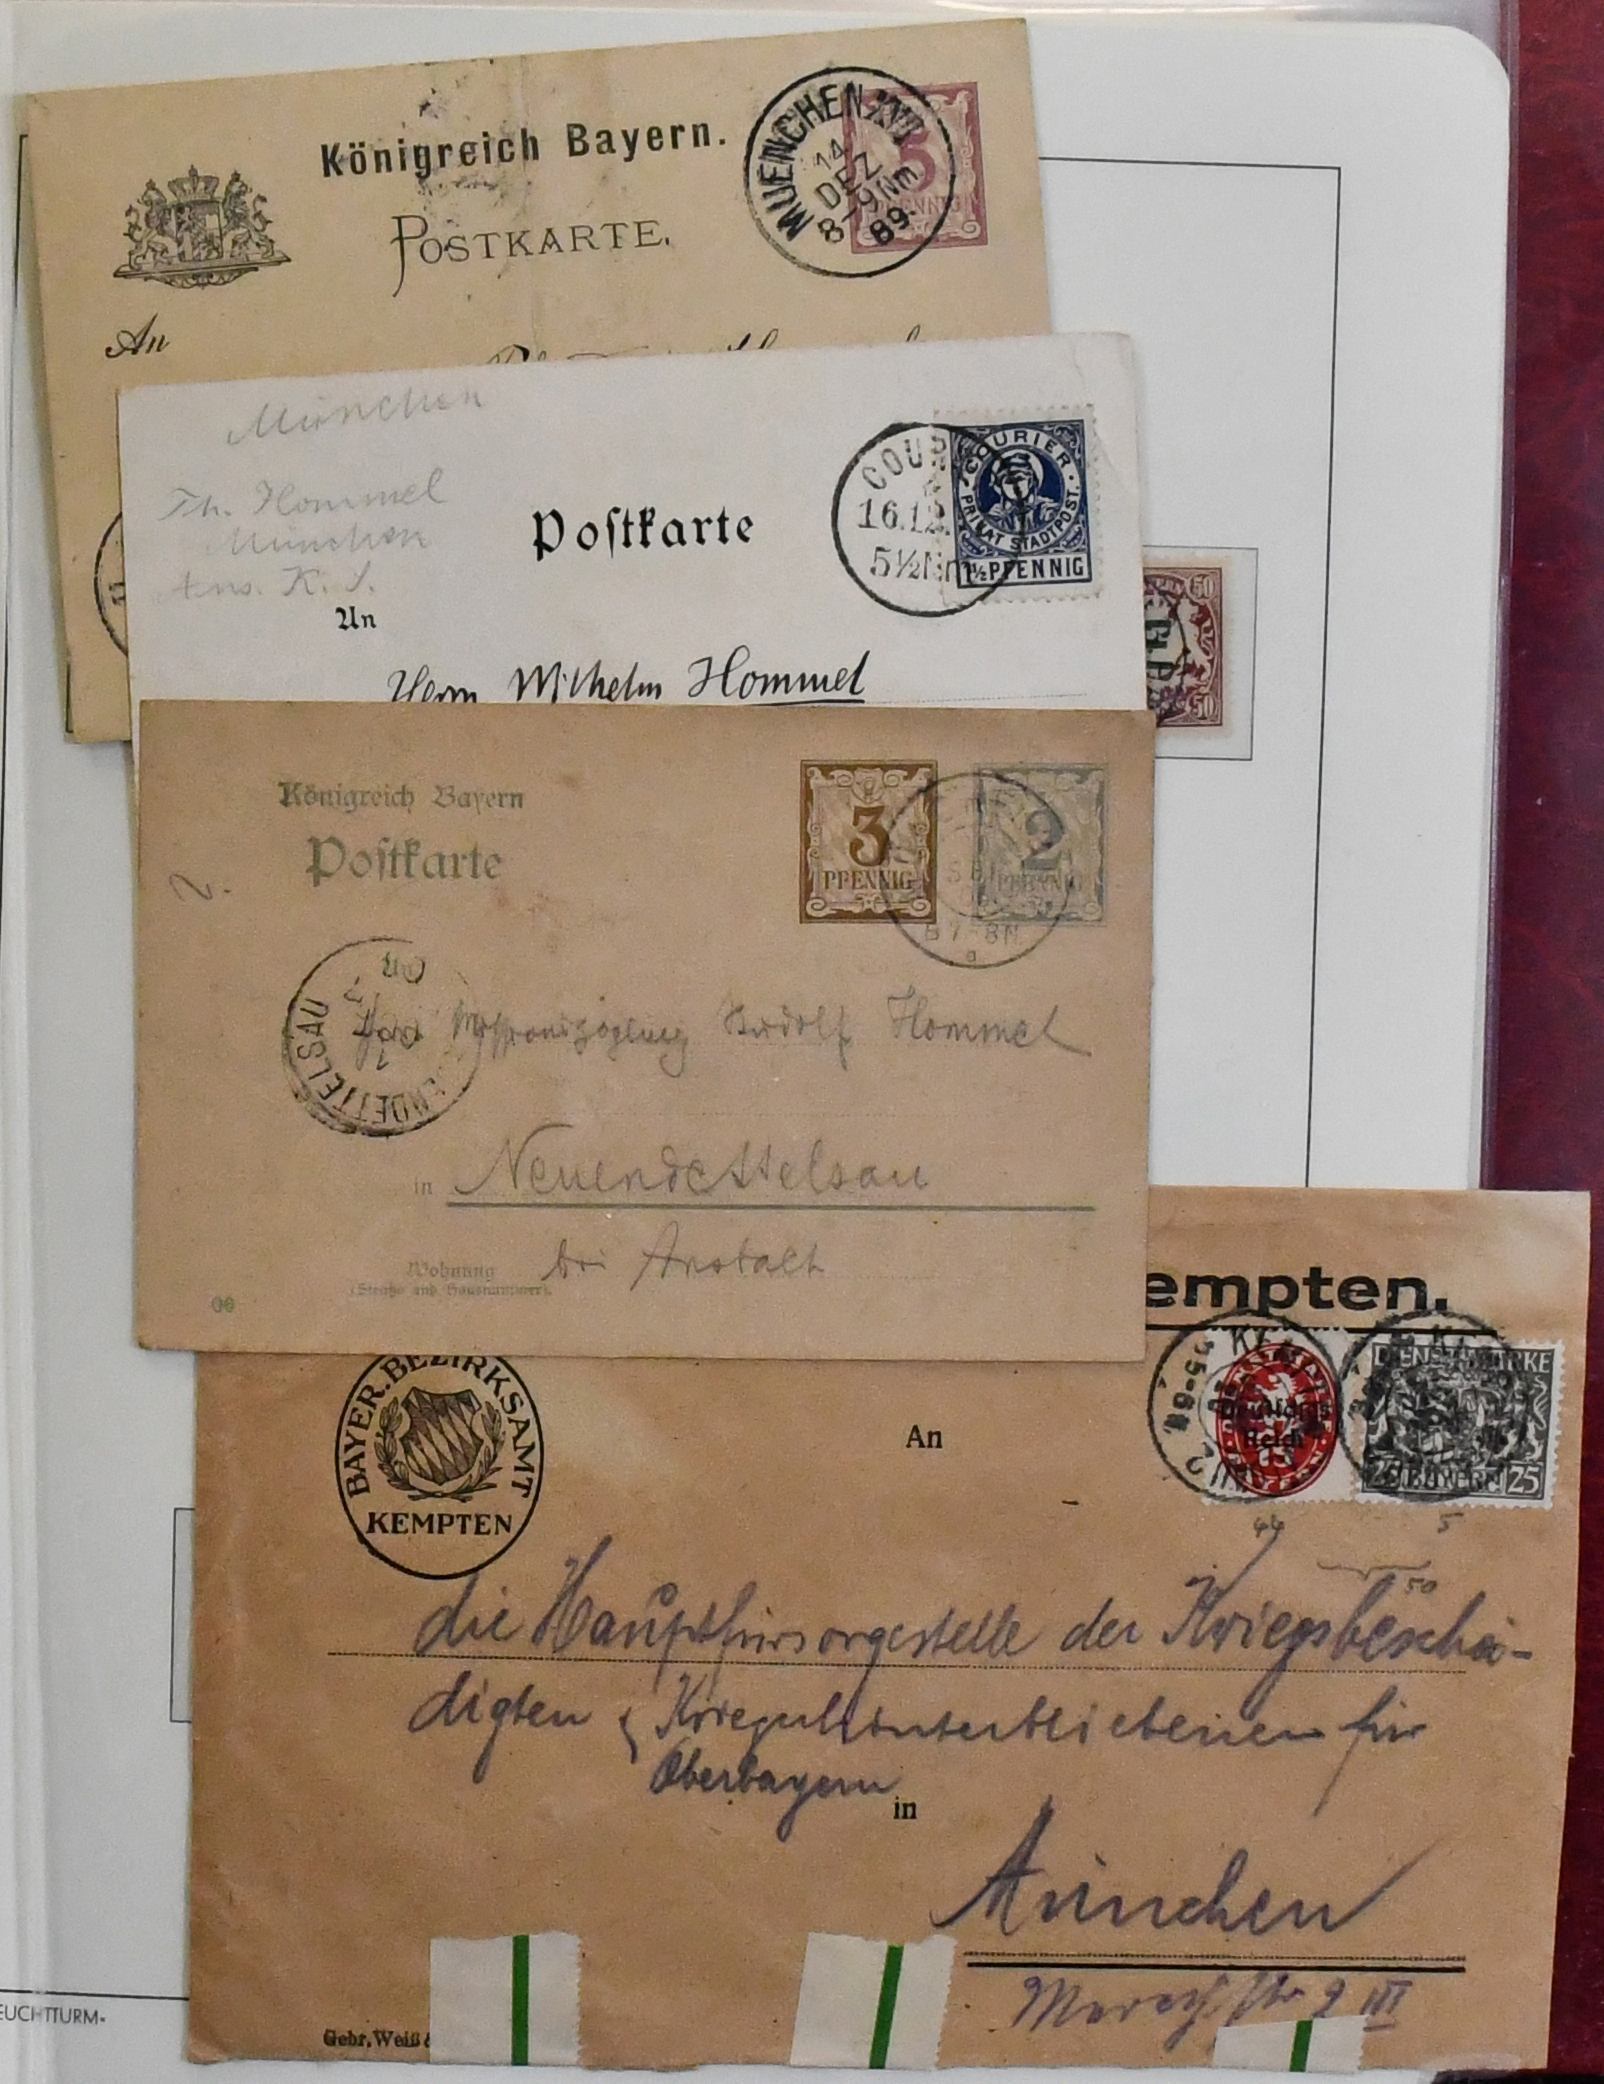 Königreich Bayern.
POSTKARTE.
MUENCHEN
14.
DEZ.
8-9 Nm
89.
5
PFENNIG
An
München
Th. Hommel
München
K. S.
Postkarte
COUR
16.12.
5½N
COURIER
PRIVAT STADTPOST.
1½ PFENNIG
An
Herrn Wilhelm Hommel
50
50
Königreich Bayern
Postkarte
3
PFENNIG
2
PFENNIG
7-8N.
2.
NEUENDETTELSAU
Rudolf Hommel
in Neuendettelsau
bei Anstalt
Wohnung
(Straße und Hausnummer).
00
empten.
BAYER. BEZIRKSAMT
KEMPTEN
An
5-6N.
Deutsches
Reich
DIENSTMARKE
25 BAYERN 25
5
50
die Hauptfürsorgestelle der Kriegsbeschä-
digten & Kriegshinterbliebenen für
Oberbayern
in
München
2 III
Gebr. Weiß &
EUCHTTURM-